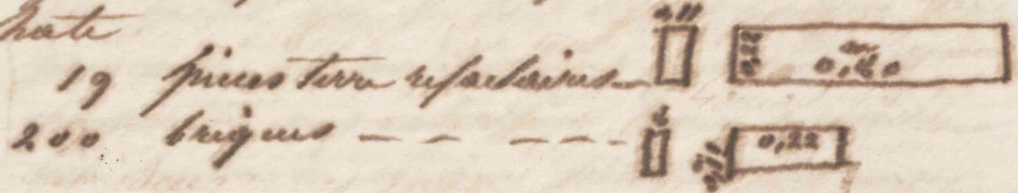 19 pieces terre refractaires 0,11 0,22 m 0,60
200 briques — — — — — 0,11 0,22